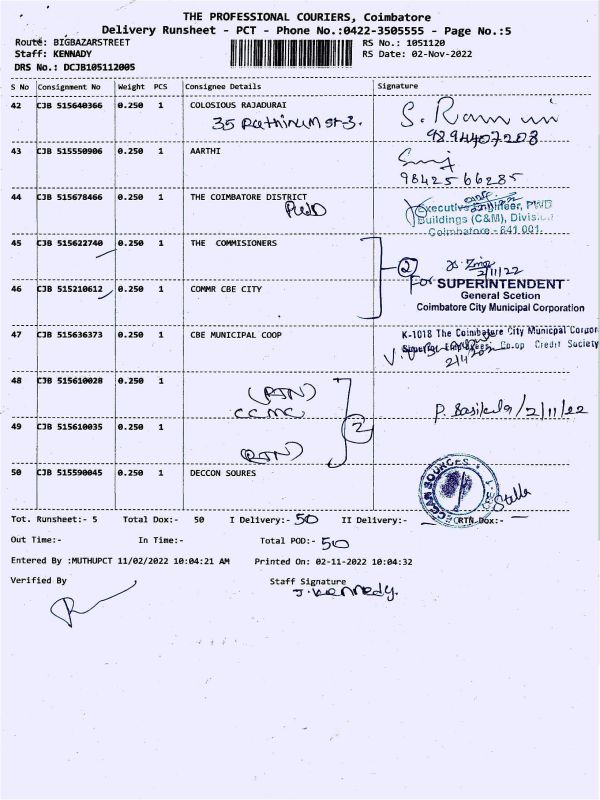 THE PROFESSIONAL COURIERS, Coimbatore
Delivery Runsheet - PCT - Phone No.:0422-3505555 - Page No.:5
Route: BIGBAZARSTREET
RS No.: 1051120
Staff: KENNADY
RS Date: 02-Nov-2022
DRS No.: DCJB105112005
S No Consignment No Weight PCS Consignee Details Signature
42 CJB 515640366 0.250 1 COLOSIOUS RAJADURAI
35 Rathinum st-3.
9894407203
43 CJB 515550906 0.250 1 AARTHI
9842566285
44 CJB 515678466 0.250 1 THE COIMBATORE DISTRICT
PWD
Executive Engineer, PWD
Buildings (C&M), Division
Coimbatore - 641 001.
45 CJB 515622740 0.250 1 THE COMMISIONERS
2
2/11/22
46 CJB 515210612 0.250 1 COMMR CBE CITY
For SUPERINTENDENT
General Scetion
Coimbatore City Municipal Corporation
47 CJB 515636373 0.250 1 CBE MUNICIPAL COOP
K-1018 The Coimbatore City Municpal Corpor
Co.op Credit Society
48 CJB 515610028 0.250 1
(RTN)
CCMC
2
P. Sasikala/2/11/22
49 CJB 515610035 0.250 1
(RTN)
50 CJB 515590045 0.250 1 DECCON SOURES
DECCAN SOURCES
CBE-1
Stella
Tot. Runsheet:- 5 Total Dox:- 50 I Delivery:- 50 II Delivery:- RTN Dox:-
Out Time:- In Time:- Total POD:- 50
Entered By :MUTHUPCT 11/02/2022 10:04:21 AM Printed On: 02-11-2022 10:04:32
Verified By
Staff Signature
J. Kennedy.